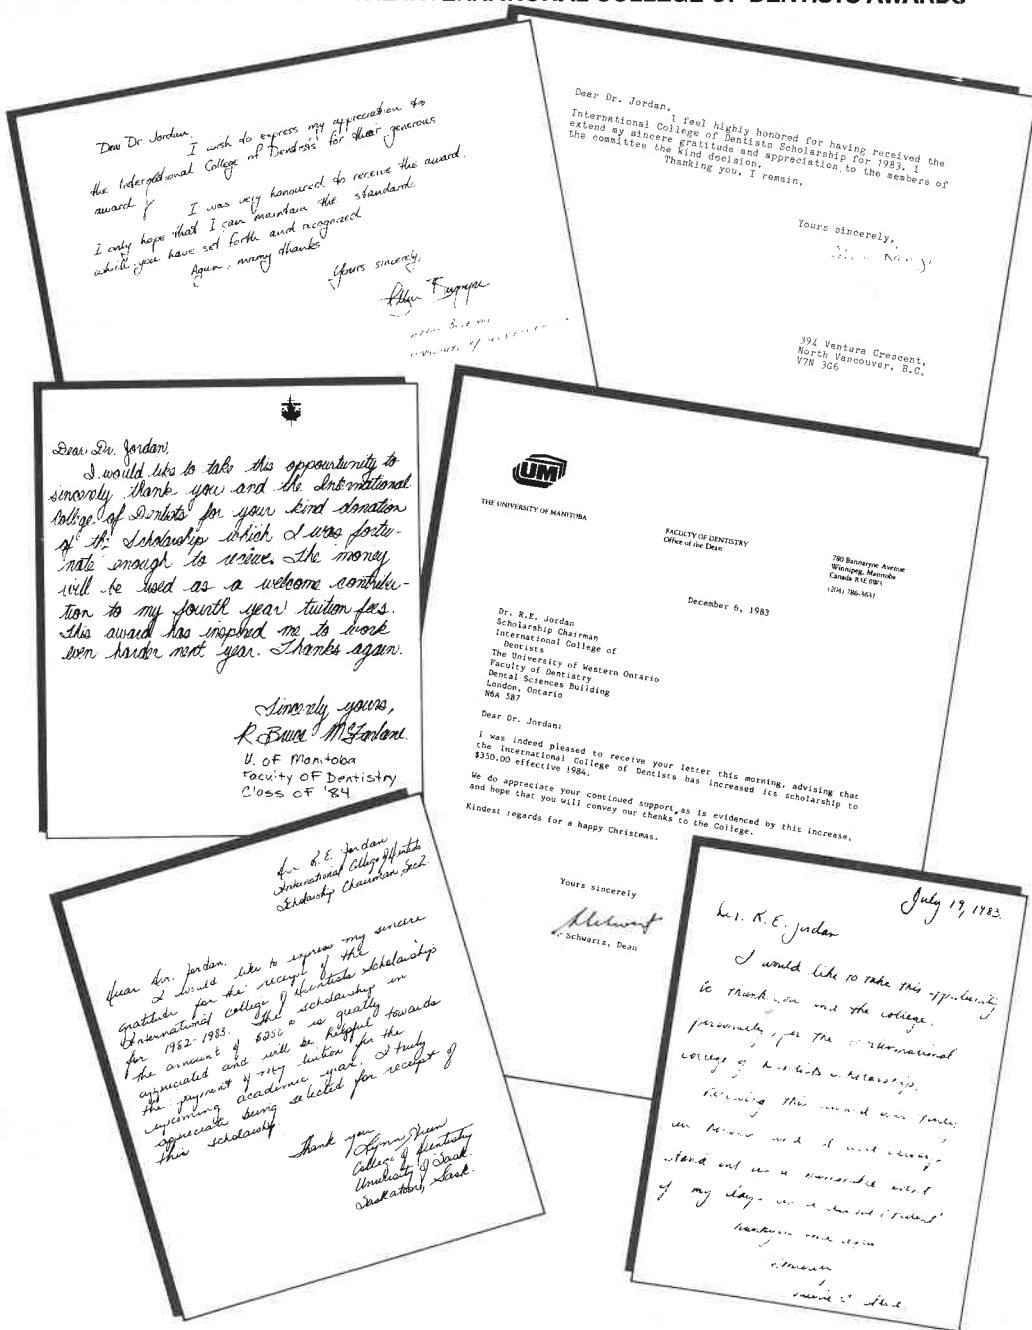 THE INTERNATIONAL COLLEGE OF DENTISTS AWARDS
Dear Dr. Jordan,
I wish to express my appreciation to
the International College of Dentists for their generous
award.
I was very honoured to receive the award.
I only hope that I can maintain the standards
which you have set forth and recognized
Again, many thanks
Yours sincerely,
Dear Dr. Jordan,
I feel highly honored for having received the
International College of Dentists Scholarship for 1983. I
extend my sincere gratitude and appreciation to the members of
the committee the kind decision.
Thanking you, I remain,
Yours sincerely,
394 Ventura Crescent,
North Vancouver, B.C.
V7N 3G6
Dear Dr. Jordan,
I would like to take this oppourtunity to
sincerely thank you and the International
College of Dentists for your kind donation
of the Scholarship which I was fortu-
nate enough to receive. The money
will be used as a welcome contribu-
tion to my fourth year tuition fees.
This award has inspired me to work
even harder next year. Thanks again.
Sincerely yours,
R Bruce McFarlane.
U. of Manitoba
Faculty of Dentistry
Class of '84
UM
THE UNIVERSITY OF MANITOBA
FACULTY OF DENTISTRY
Office of the Dean
780 Bannatyne Avenue
Winnipeg, Manitoba
Canada R3E 0W3
(204) 786-3631
December 6, 1983
Dr. R.E. Jordan
Scholarship Chairman
International College of
Dentists
The University of Western Ontario
Faculty of Dentistry
Dental Sciences Building
London, Ontario
N6A 5B7
Dear Dr. Jordan:
I was indeed pleased to receive your letter this morning, advising that
the International College of Dentists has increased its scholarship to
$350.00 effective 1984.
We do appreciate your continued support, as is evidenced by this increase,
and hope that you will convey our thanks to the College.
Kindest regards for a happy Christmas.
Yours sincerely
Schwartz, Dean
Dr. R.E. Jordan
International College of Dentists
Scholarship Chairman,
Dear Dr. Jordan.
I would like to express my sincere
gratitude for the receipt of the
International College of Dentists Scholarship
for 1982-1983. The scholarship in
the amount of is greatly
appreciated and will be helpful towards
the payment of my tuition for the
upcoming academic year. I truly
appreciate being selected for receipt of
this scholarship.
Thank you
Lynn
College of Dentistry
University of Sask.
Saskatoon, Sask.
July 19, 1983.
Dr. R.E. Jordan
I would like to take this opportunity
to thank you and the college.
personally, for the International
College of Dentists scholarship.
Receiving this award was
stand out as a
of my days as a